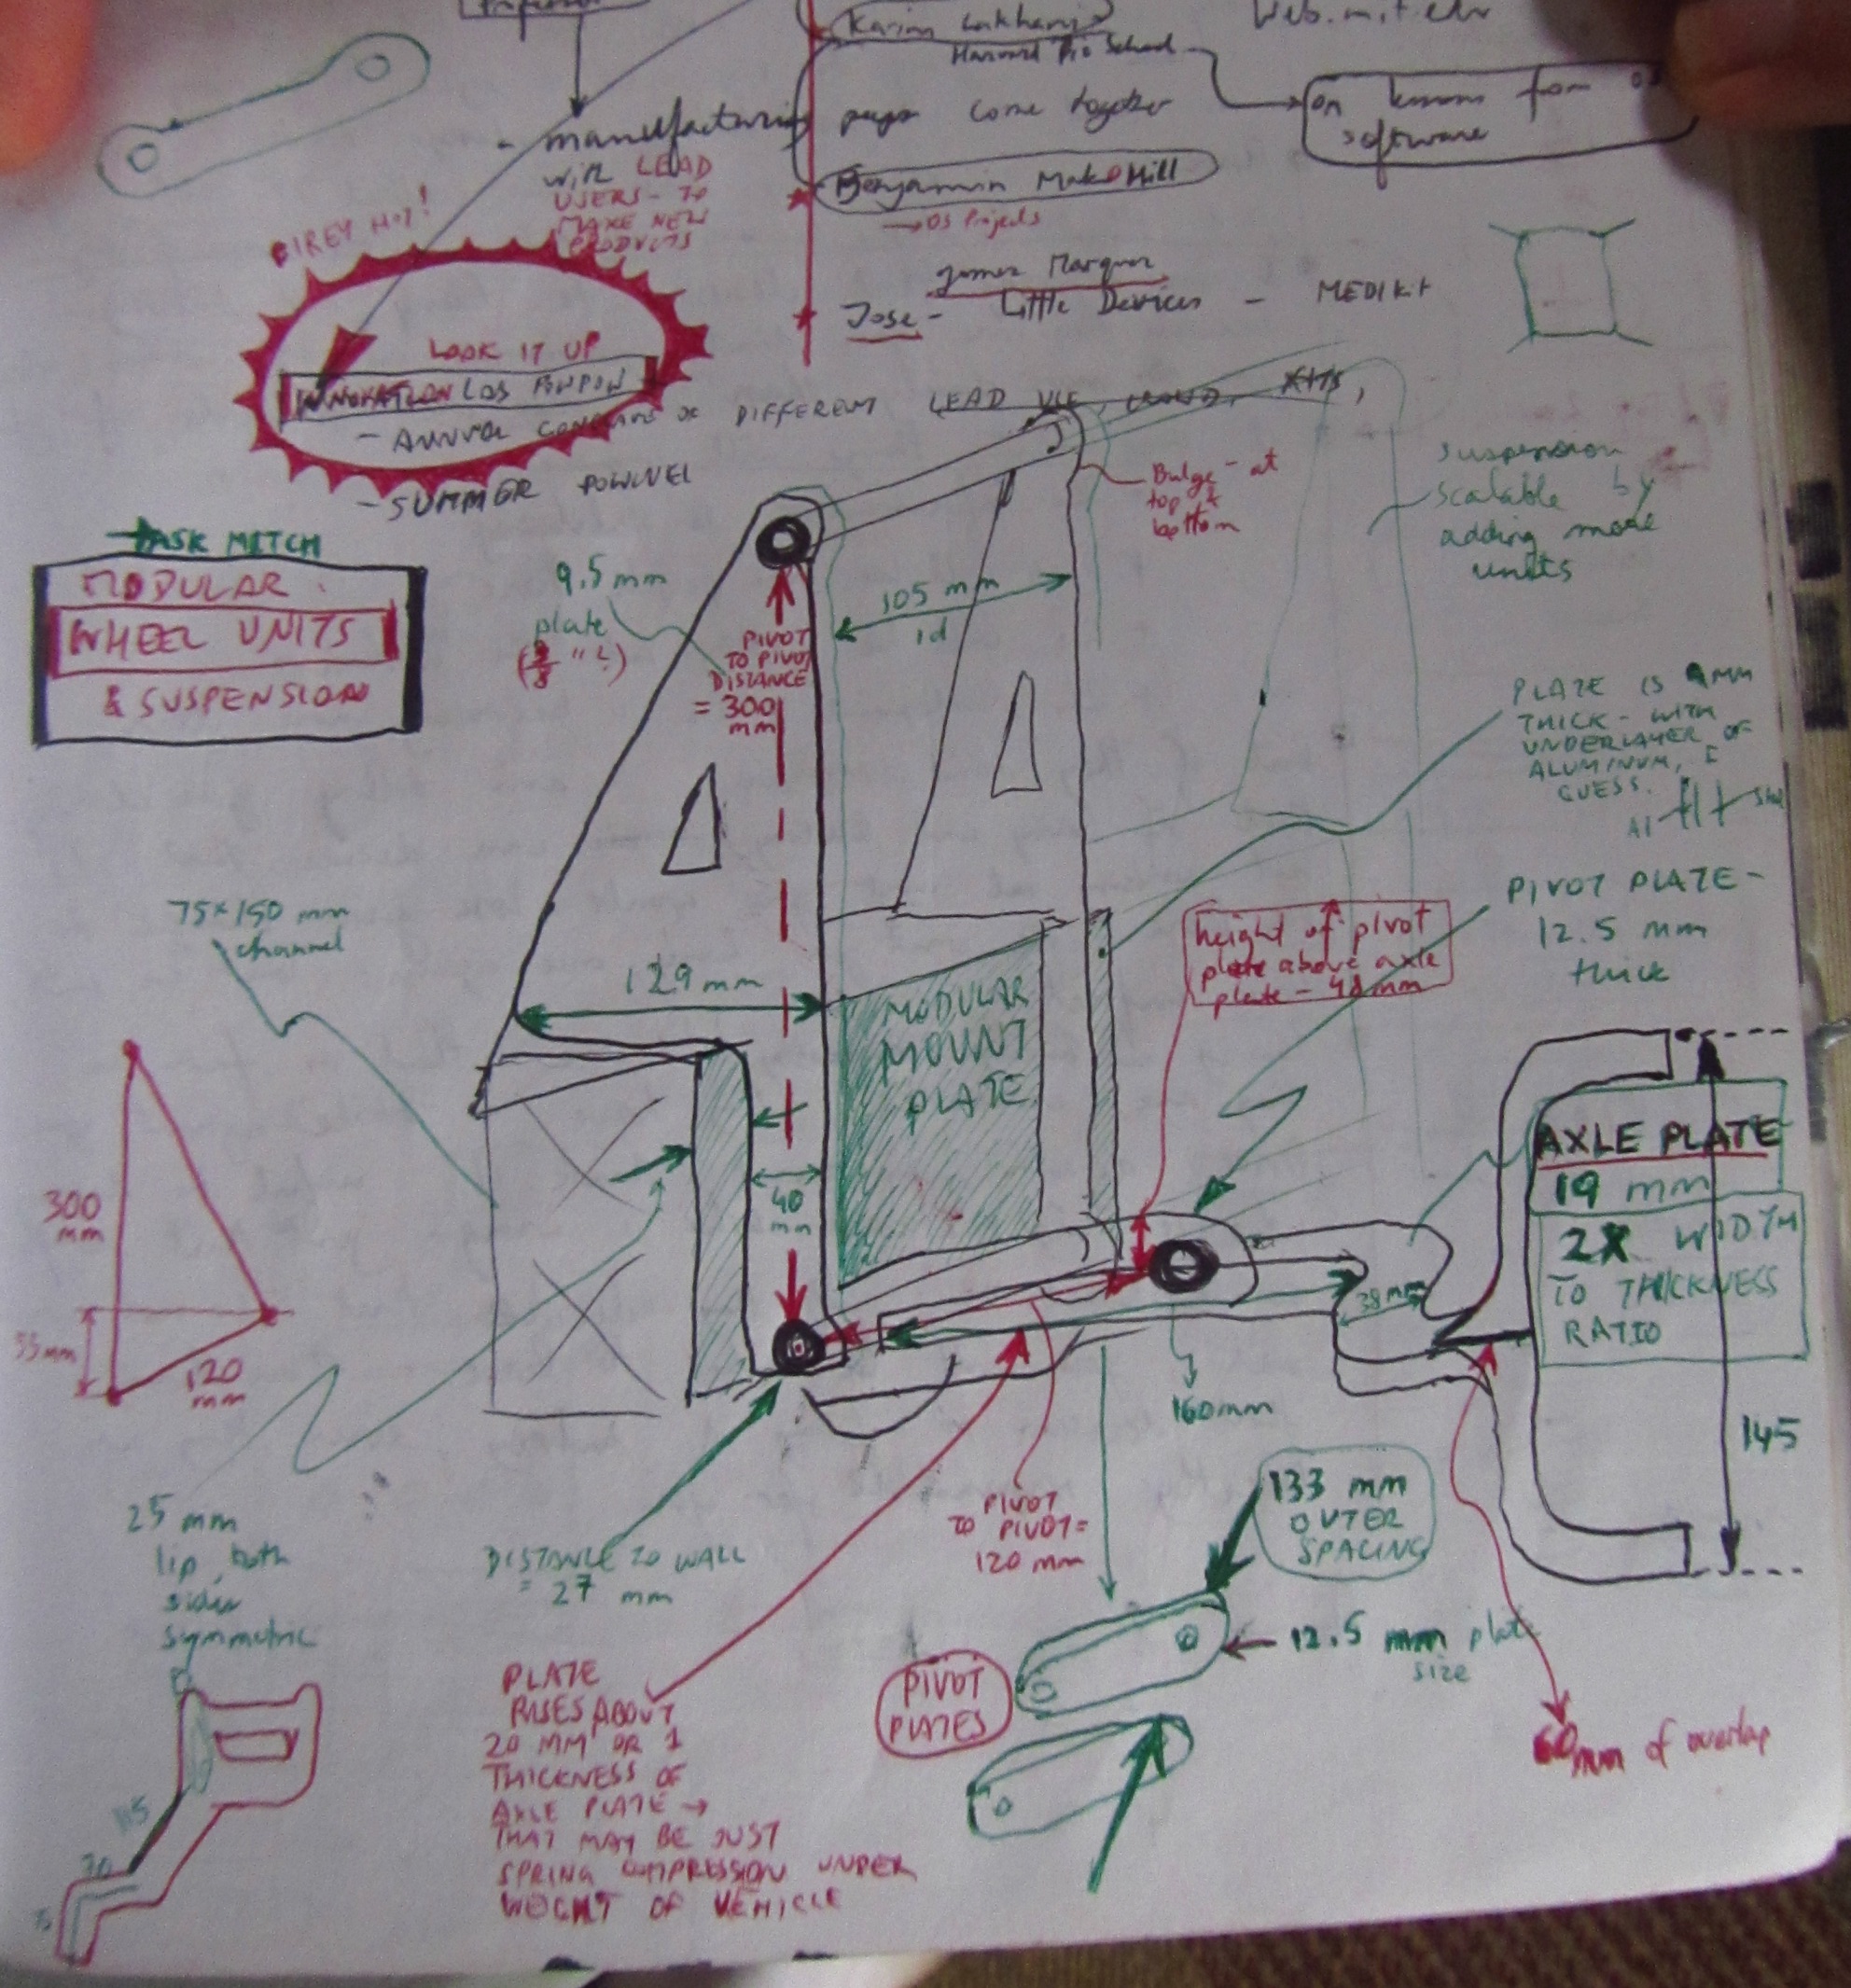 Karim Lakhani
Harvard Biz School
web.mit.edu
manufacturing
with LEAD
USERS - TO
MAKE NEW
PRODUCTS
come together
on lessons from
software
Benjamin Mako Hill
→ OS Projects
FIREY HOT!
LOOK IT UP
INNOVATION LAB POWPOW
- ANNUAL
DIFFERENT LEAD
- SUMMER
Jose - Little Devices - MEDIKIT
TASK MITCH
MODULAR
WHEEL UNITS
& SUSPENSION
Bulge - at
top &
bottom
suspension
scalable by
adding more
units
9.5 mm
plate
(3/8 "?)
PIVOT
TO PIVOT
DISTANCE
= 300
mm
105 mm
id
PLATE IS 9MM
THICK - WITH
UNDERLAYER OF
ALUMINUM, I
GUESS.
Al
PIVOT PLATE -
12.5 mm
thick
75×150 mm
channel
129 mm
height of pivot
plate above axle
plate - 48 mm
MODULAR
MOUNT
PLATE
40
mm
AXLE PLATE
19 mm
2X WIDTH
TO THICKNESS
RATIO
38 mm
145
300
mm
55 mm
120
mm
160 mm
25 mm
lip both
sides
symmetric
DISTANCE TO WALL
= 27 mm
PIVOT
TO PIVOT =
120 mm
133 mm
OUTER
SPACING
12.5 mm plate
size
PIVOT
PLATES
60 mm of overlap
PLATE
RISES ABOUT
20 MM OR 1
THICKNESS OF
AXLE PLATE →
THAT MAY BE JUST
SPRING COMPRESSION UNDER
WEIGHT OF VEHICLE